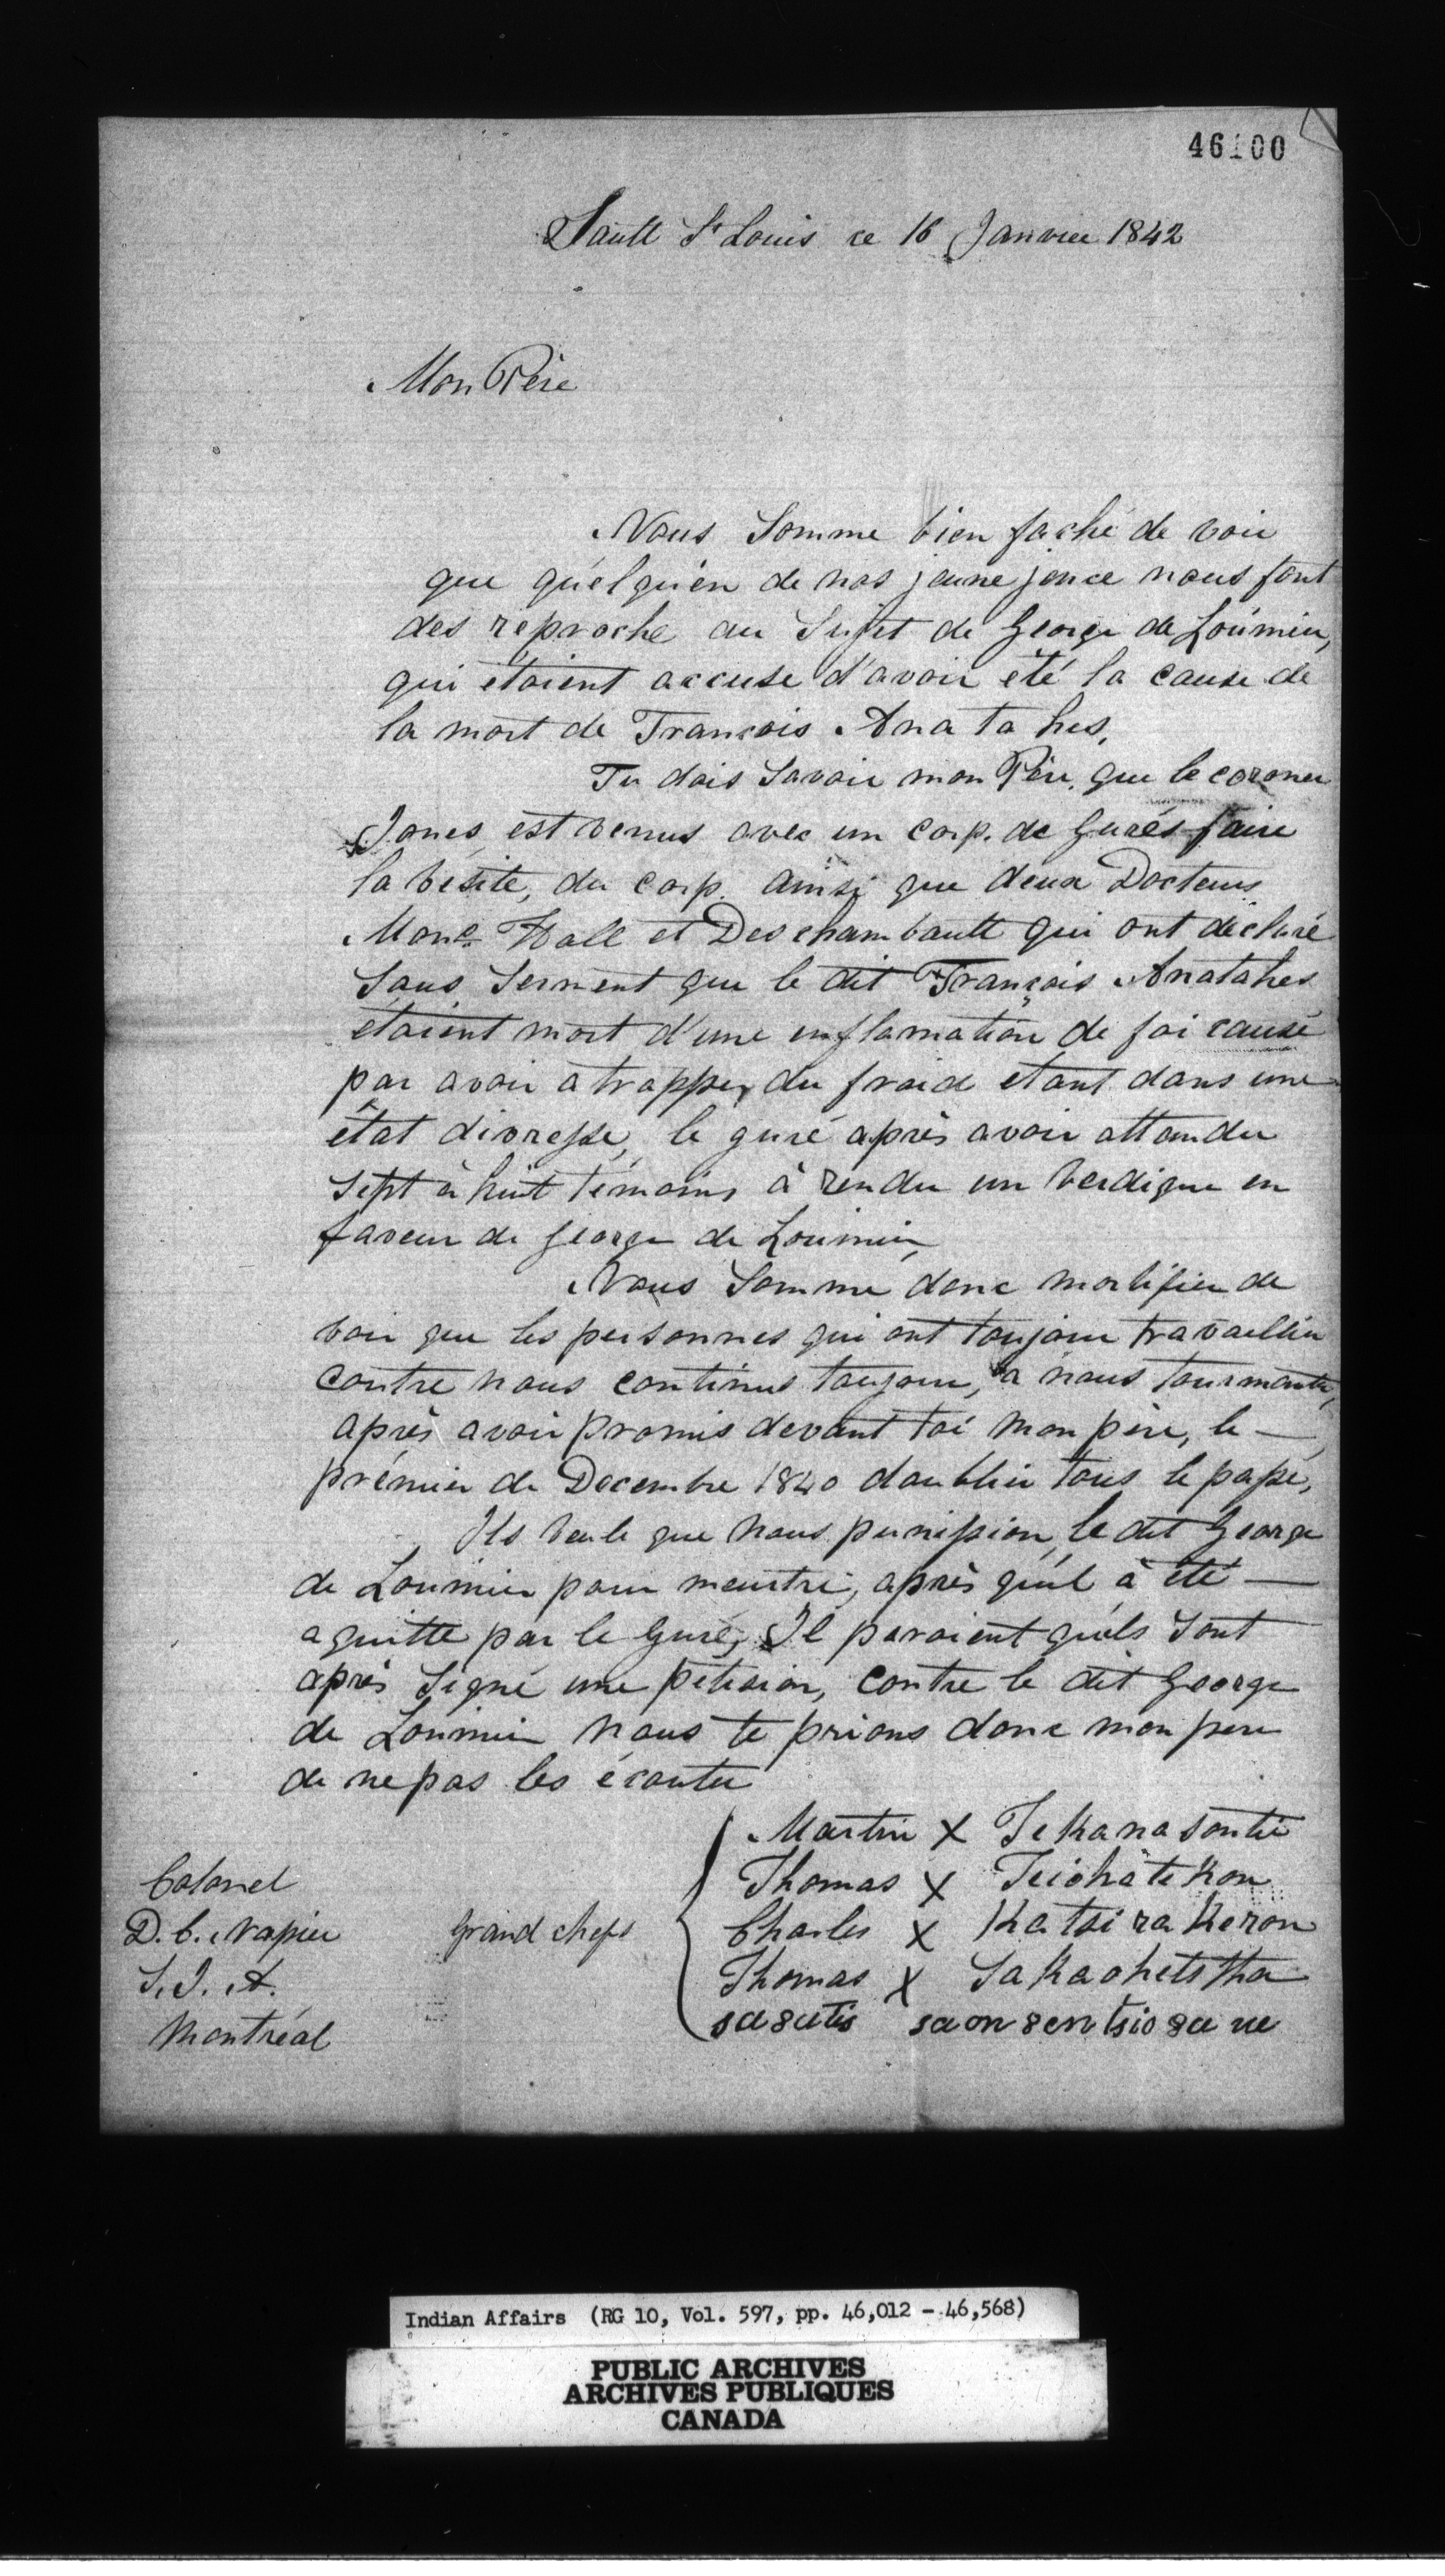 46100
Sault St Louis ce 16 Janvier 1842
Mon Père
Nous Somme bien faché de voir
que quelqu'én de nos jeune jence nous font
des réproche au Sujet de George de Lorimier,
qui étoient accuse d'avoir eté la cause de
la mort de François Anatahes,
Tu dois Savoir mon Père, que le coroner
Jones est venus avec un corp. de gurés faire
la vésite, du corp. ainsi que deux Docteurs
Monc. Hall et Deschambault qui ont declaré
Sous Serment que le dit François Anatahes
étoient mort d'une enflamation de foi causé
par avoir atrapper du froid etant dans une
état divresse, le guré après avoir attandu
Sept à huit témoins à rendu un verdique en
faveur de George de Lorimier,
Nous Somme donc mortifier de
voir que les personnes qui ont toujour travaillier
contre nous continus toujour, a nous tourmenter,
après avoir promis devant toi mon père, le —
prémier de Decembre 1840 doublier tous le passé,
Ils veule que nous punission, le dit George
de Lorimier pour meurtre, après qu'il à été —
aquitte par le Guré, Il paroient qu'ils Sont
après Signé une pétision, contre le dit George
de Lorimier nous te prions donc mon pere
de ne pas les écouter
Martin X Tekanasontie
Thomas X Teiohatekon
Charles X Katsirakeron
Thomas X Sakaohetstha
sa8atis saon8entsio8a ne
grand chefs
Colonel
D. C. Napier
S. I. A.
Montréal
Indian Affairs (RG 10, Vol. 597, pp. 46,012 - 46,568)
PUBLIC ARCHIVES
ARCHIVES PUBLIQUES
CANADA